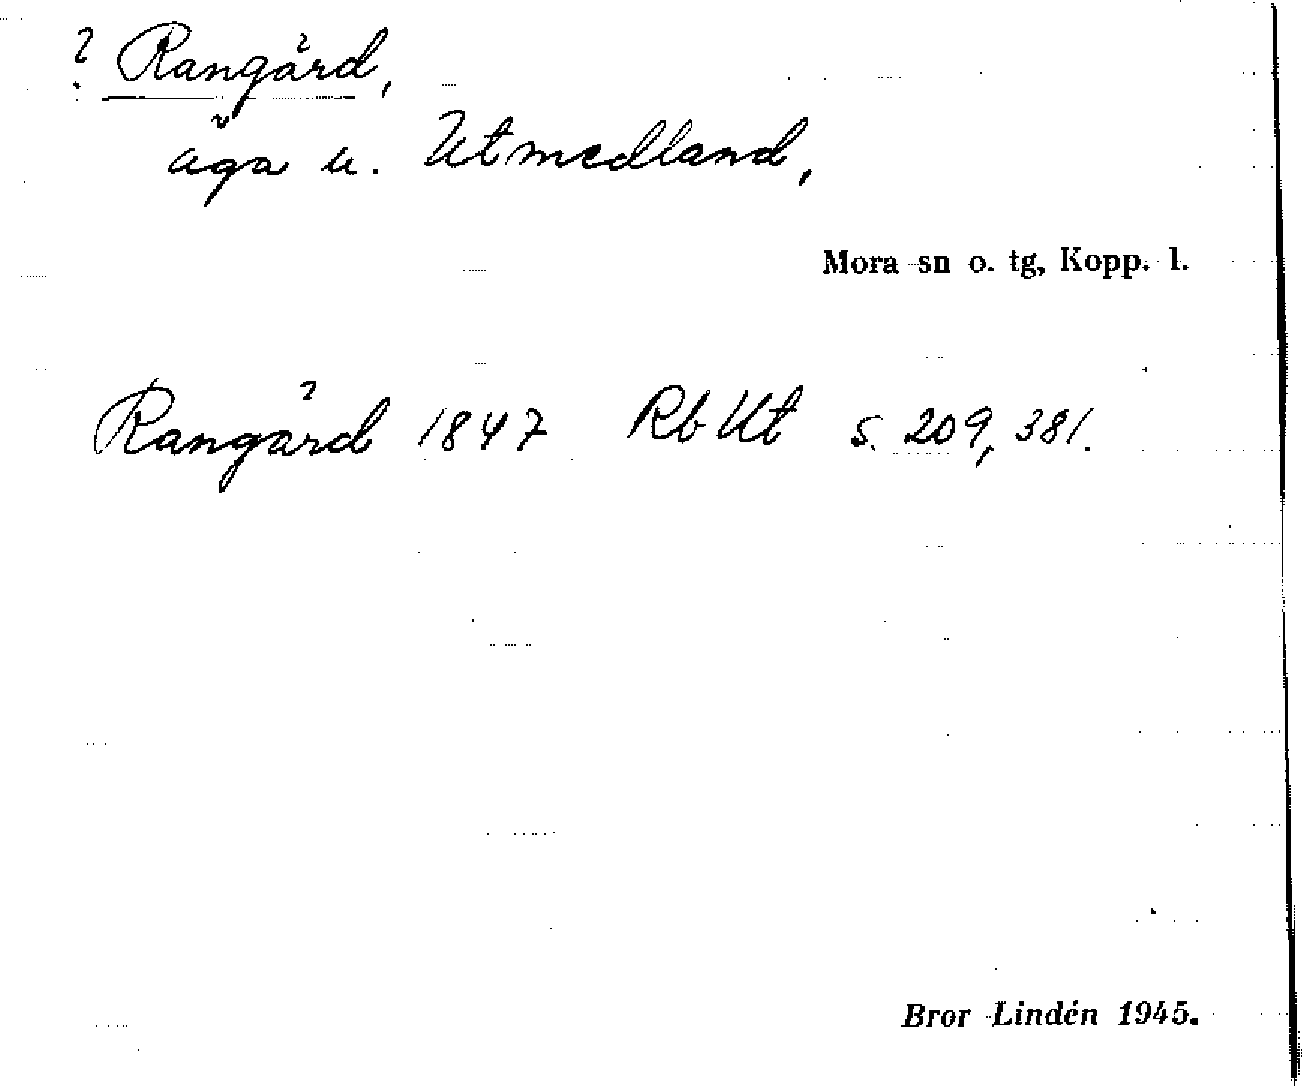 ? Rangård,
äga u. Utmedland,
Mora sn o. tg, Kopp. l.
Rangård 1847 Rb Ut s. 209, 381.
Bror Lindén 1945.